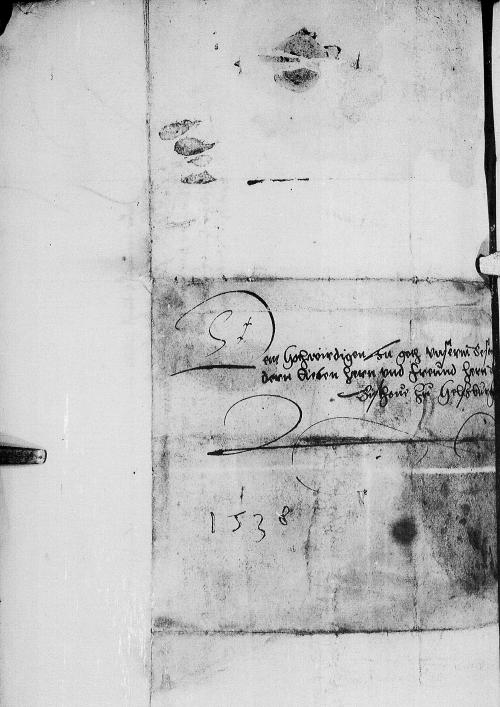 Dem Hochwirdigen In got Unserm Beson
dern Lieben Hern und Freund Hern
Bischoue zu
1538